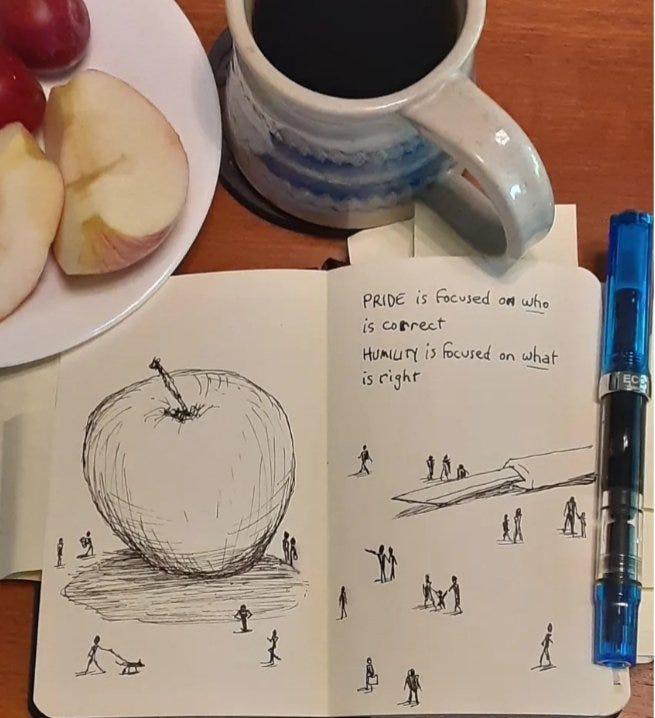 PRIDE is focused on who
is correct
HUMILITY is focused on what
is right
ECO